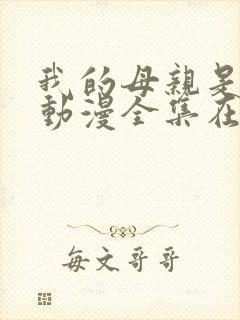 我的母親是
動漫全集在
每文哥哥